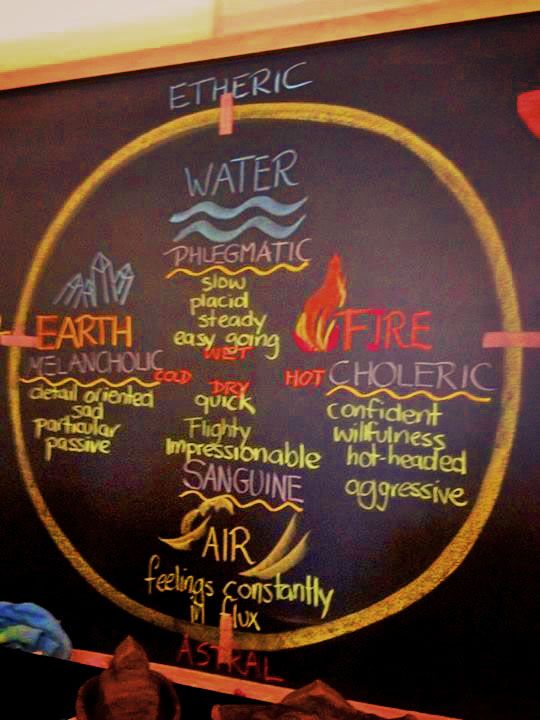 ETHERIC
WATER
PHLEGMATIC
slow
placid
steady
easy going
EARTH
MELANCHOLIC
detail oriented
sad
particular
passive
FIRE
CHOLERIC
confident
willfulness
hot-headed
aggressive
WET
COLD
HOT
DRY
quick
Flighty
Impressionable
SANGUINE
AIR
feelings constantly
in flux
ASTRAL